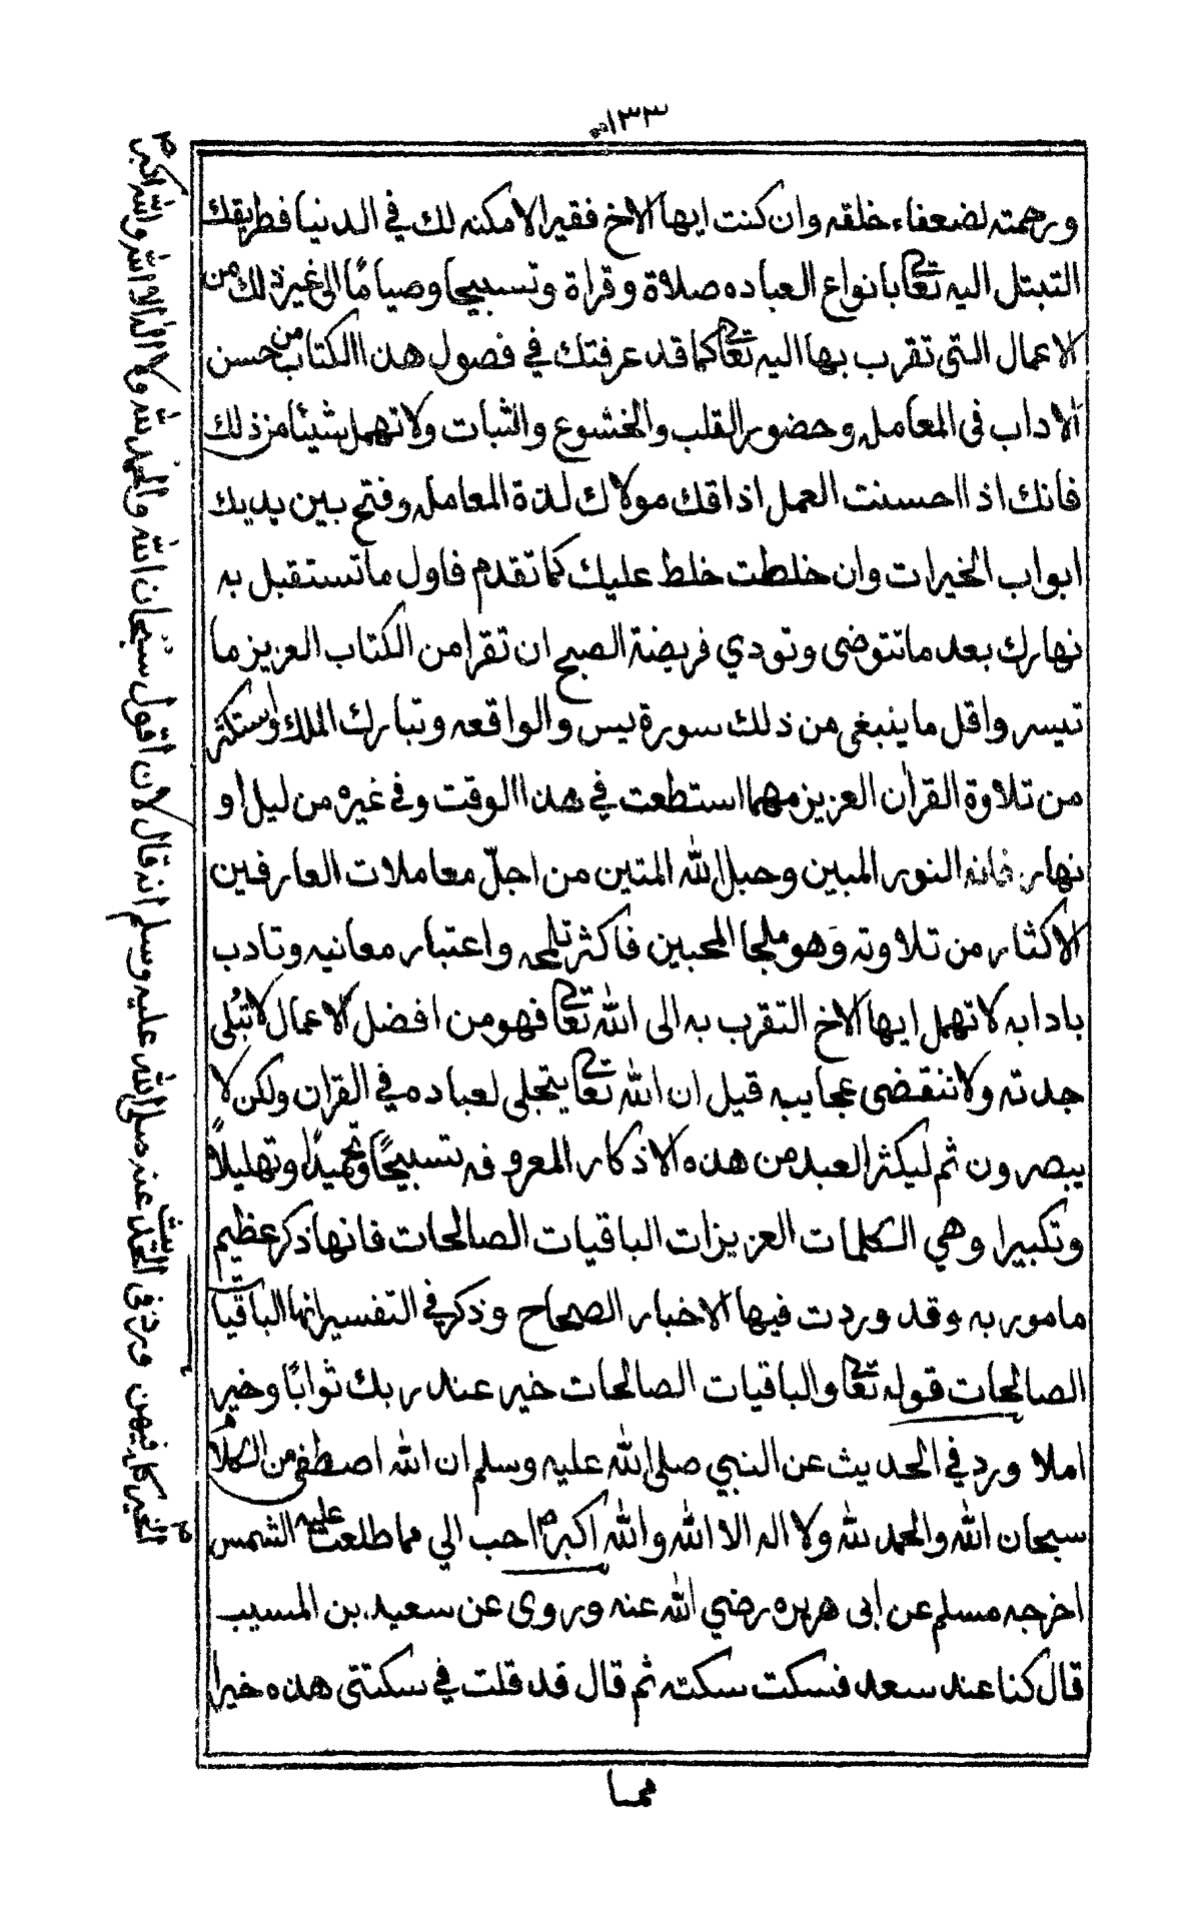 ١٣٣
ورحمته لضعفاء خلقه وان كنت ايها الاخ فقيرا لامكنه لك في الدنيا فطريقك
التبتل اليه تعالى بانواع العباده صلاة وقراة وتسبيحا وصياما الى غير ذلك من
الاعمال التي تقرب بها اليه تعالى كما قد عرفتك في فصول هذا الكتاب من حسن
الاداب فى المعامله وحضور القلب والخشوع والثبات ولا تهمل شيئا من ذلك
فانك اذا احسنت العمل اذاقك مولاك لذة المعامله وفتح بين يديك
ابواب الخيرات وان خلطت خلط عليك كما تقدم فاول ما تستقبل به
نهارك بعد ما تتوضى وتودي فريضة الصبح ان تقرا من الكتاب العزيز ما
تيسر واقل ما ينبغى من ذلك سورة يس والواقعه وتبارك الملك واستكثر
من تلاوة القرآن العزيز مهما استطعت في هذا الوقت وفي غيره من ليل او
نهار فانه النور المبين وحبل الله المتين من اجلّ معاملات العارفين
الاكثار من تلاوته وهو ملجا المحبين فاكثر تلمحه واعتبار معانيه وتادب
بادابه لا تهمل ايها الاخ التقرب به الى الله تعالى فهو من افضل الاعمال لا تبلى
جدته ولا تنقضى عجايبه قيل ان الله تعالى يتجلى لعباده في القران ولكن لا
يبصرون ثم ليكثر العبد من هذه الاذكار المعروفه تسبيحًا وتحميدًا وتهليلاً
وتكبيرا وهي الكلمات العزيزات الباقيات الصالحات فانها ذكر عظيم
مامور به وقد وردت فيها الاخبار الصحاح وذكر في التفسير انها الباقيات
الصالحات قوله تعالى والباقيات الصالحات خير عند ربك ثوابًا وخير
املا ورد في الحديث عن النبي صلى الله عليه وسلم ان الله اصطفى من الكلام
سبحان الله والحمد لله ولا اله الا الله والله اكبر احب الي مما طلعت عليه الشمس
اخرجه مسلم عن ابى هريره رضي الله عنه وروى عن سعيد بن المسيب
قال كنا عند سعد فسكت سكته ثم قال قد قلت في سكتتى هذه خيرا
مما
ورد فى الحديث عنه صلى الله عليه وسلم انه قال لان اقول سبحان الله والحمد لله ولا اله الا الله والله اكبر